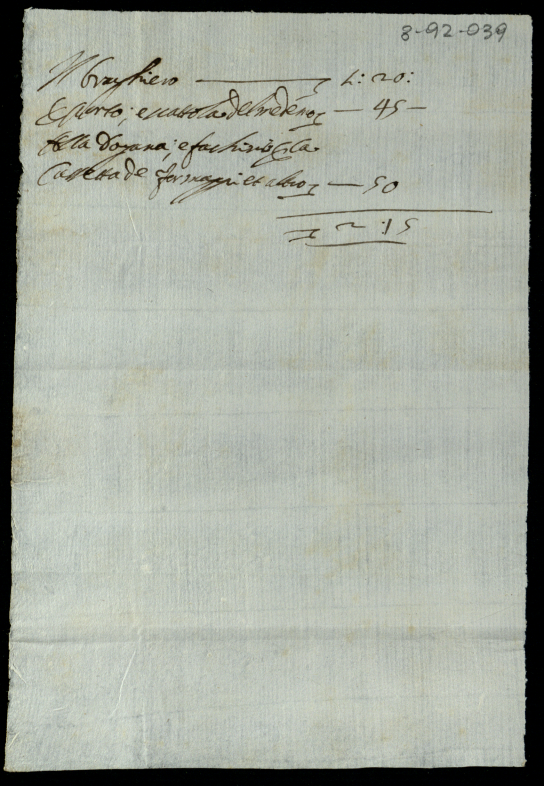 8-92-039
Il braghiero L: 20:
porto, e scatola del medemo 45
Alla Dogana, e fachini la
Cassetta de formaggi et altro 50
2 :15